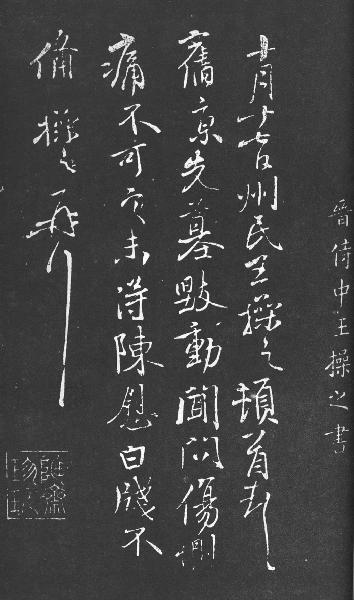 晉侍中王操之書
月廿七日州民王操之頓首
舊京先墓毀動聞問傷惻
痛不可言未得陳慰白牋不
備操之再拜